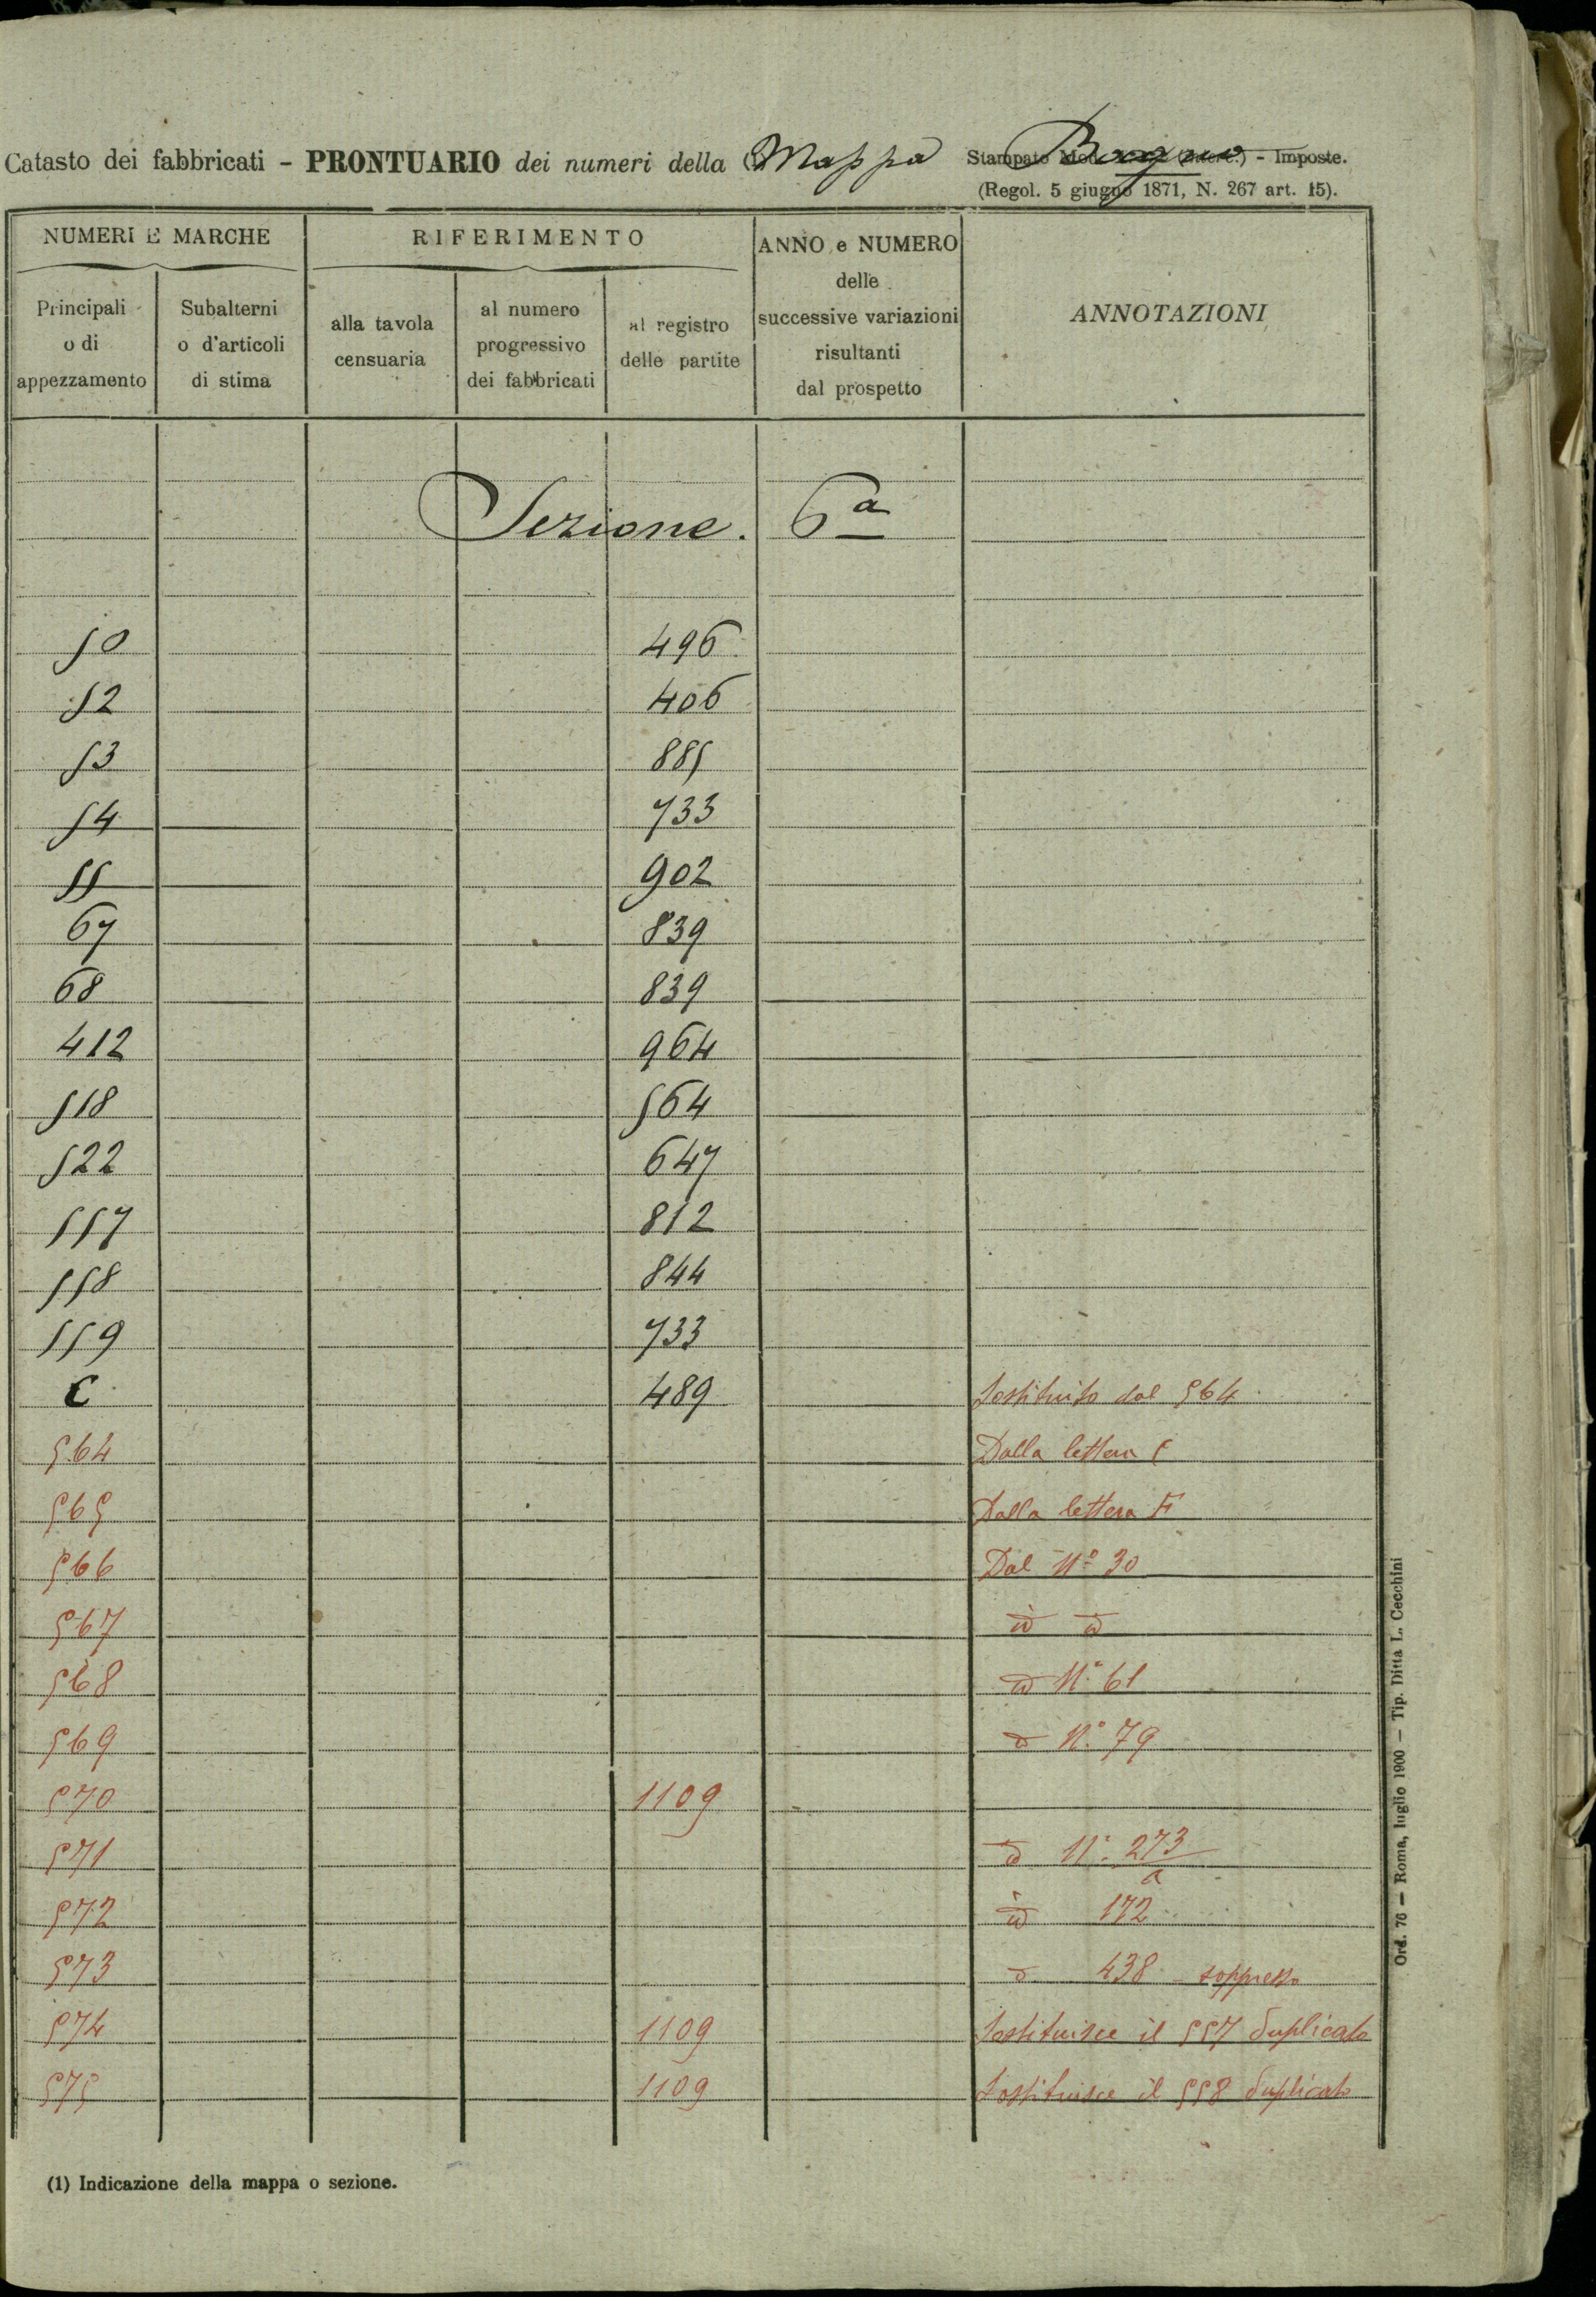 Catasto dei fabbricati - PRONTUARIO dei numeri della (1) Mappa Bagno
Stampato Mod. - Imposte.
(Regol. 5 giugno 1871, N. 267 art. 15).
NUMERI E MARCHE
RIFERIMENTO
ANNO e NUMERO
delle
successive variazioni
risultanti
dal prospetto
ANNOTAZIONI
Principali
o di
appezzamento
Subalterni
o d'articoli
di stima
alla tavola
censuaria
al numero
progressivo
dei fabbricati
al registro
delle partite
Sezione. 6a
50 496
52 406
53 885
54 733
55 902
67 839
68 839
412 964
518 564
522 647
557 812
558 844
559 733
C 489 Sostituito dal 564
564 Dalla lettera C
565 Dalla lettera F
566 Dal No 30
567 id id
568 id No 61
569 id No 79
570 1109
571 id No 273/a
572 id 172
573 id 438 - soppresso
574 1109 Sostituisce il 557 duplicato
575 1109 Sostituisce il 558 duplicato
(1) Indicazione della mappa o sezione.
Ord. 76 — Roma, luglio 1900 — Tip. Ditta L. Cecchini